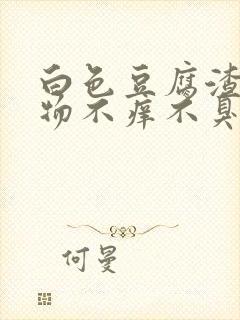 白色豆腐渣
物不痒不臭
何曼